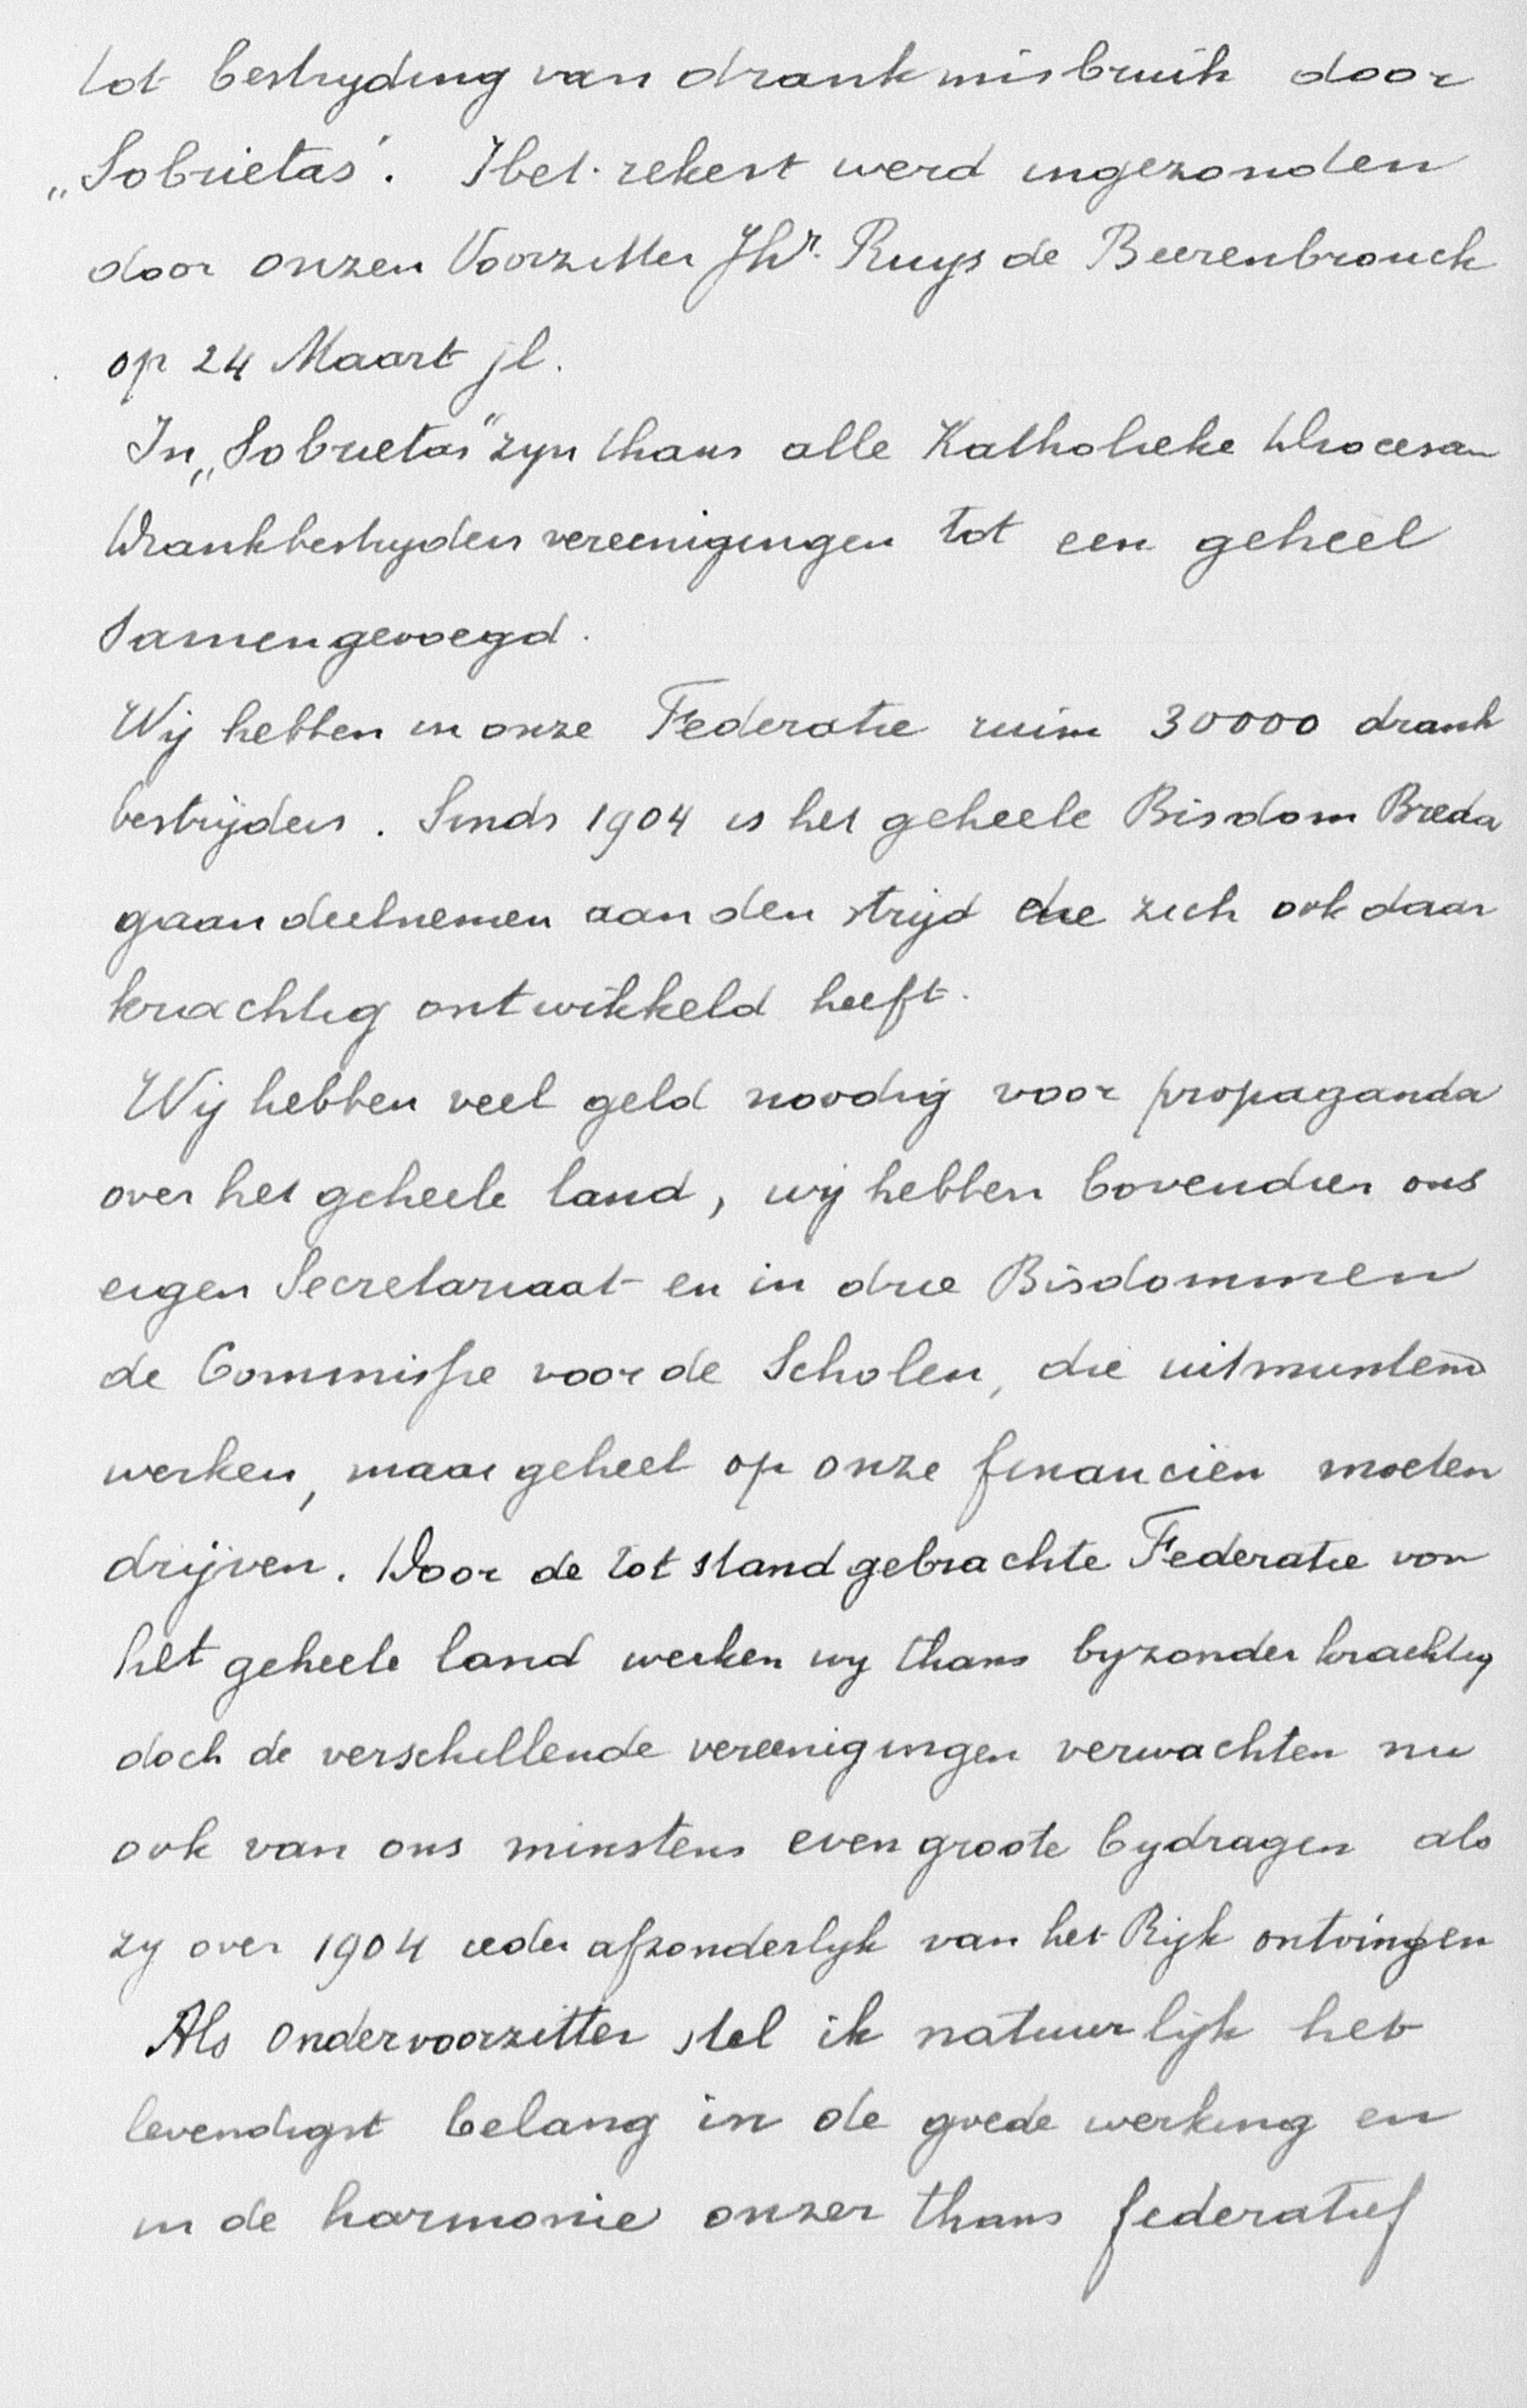 tot bestryding van drankmisbruik door
„Sobrietas". Het rekest werd ingezonden
door onzen Voorzitter Jhr. Ruys de Beerenbrouck
op 24 Maart jl.
In „Sobrietas" zyn thans alle Katholieke Diocesan
Drankbestryders vereenigingen tot een geheel
samengevoegd.
Wij hebben in onze Federatie ruim 30000 drank
bestrijders. Sinds 1904 is het geheele Bisdom Breda
gaan deelnemen aan den strijd die zich ook daar
krachtig ontwikkeld heeft.
Wij hebben veel geld noodig voor propaganda
over het geheele land, wij hebben bovendien ons
eigen Secretariaat en in drie Bisdommen
de Commissie voor de Scholen, die uitmuntend
werken, maar geheel op onze financiën moeten
drijven. Door de tot stand gebrachte Federatie van
het geheele land werken wy thans byzonder krachtig
doch de verschillende vereenigingen verwachten nu
ook van ons minstens even groote bydragen als
zy over 1904 ieder afzonderlyk van het Rijk ontvingen
Als Ondervoorzitter stel ik natuurlijk het
levendigst belang in de goede werking en
in de harmonie onzer thans federatief